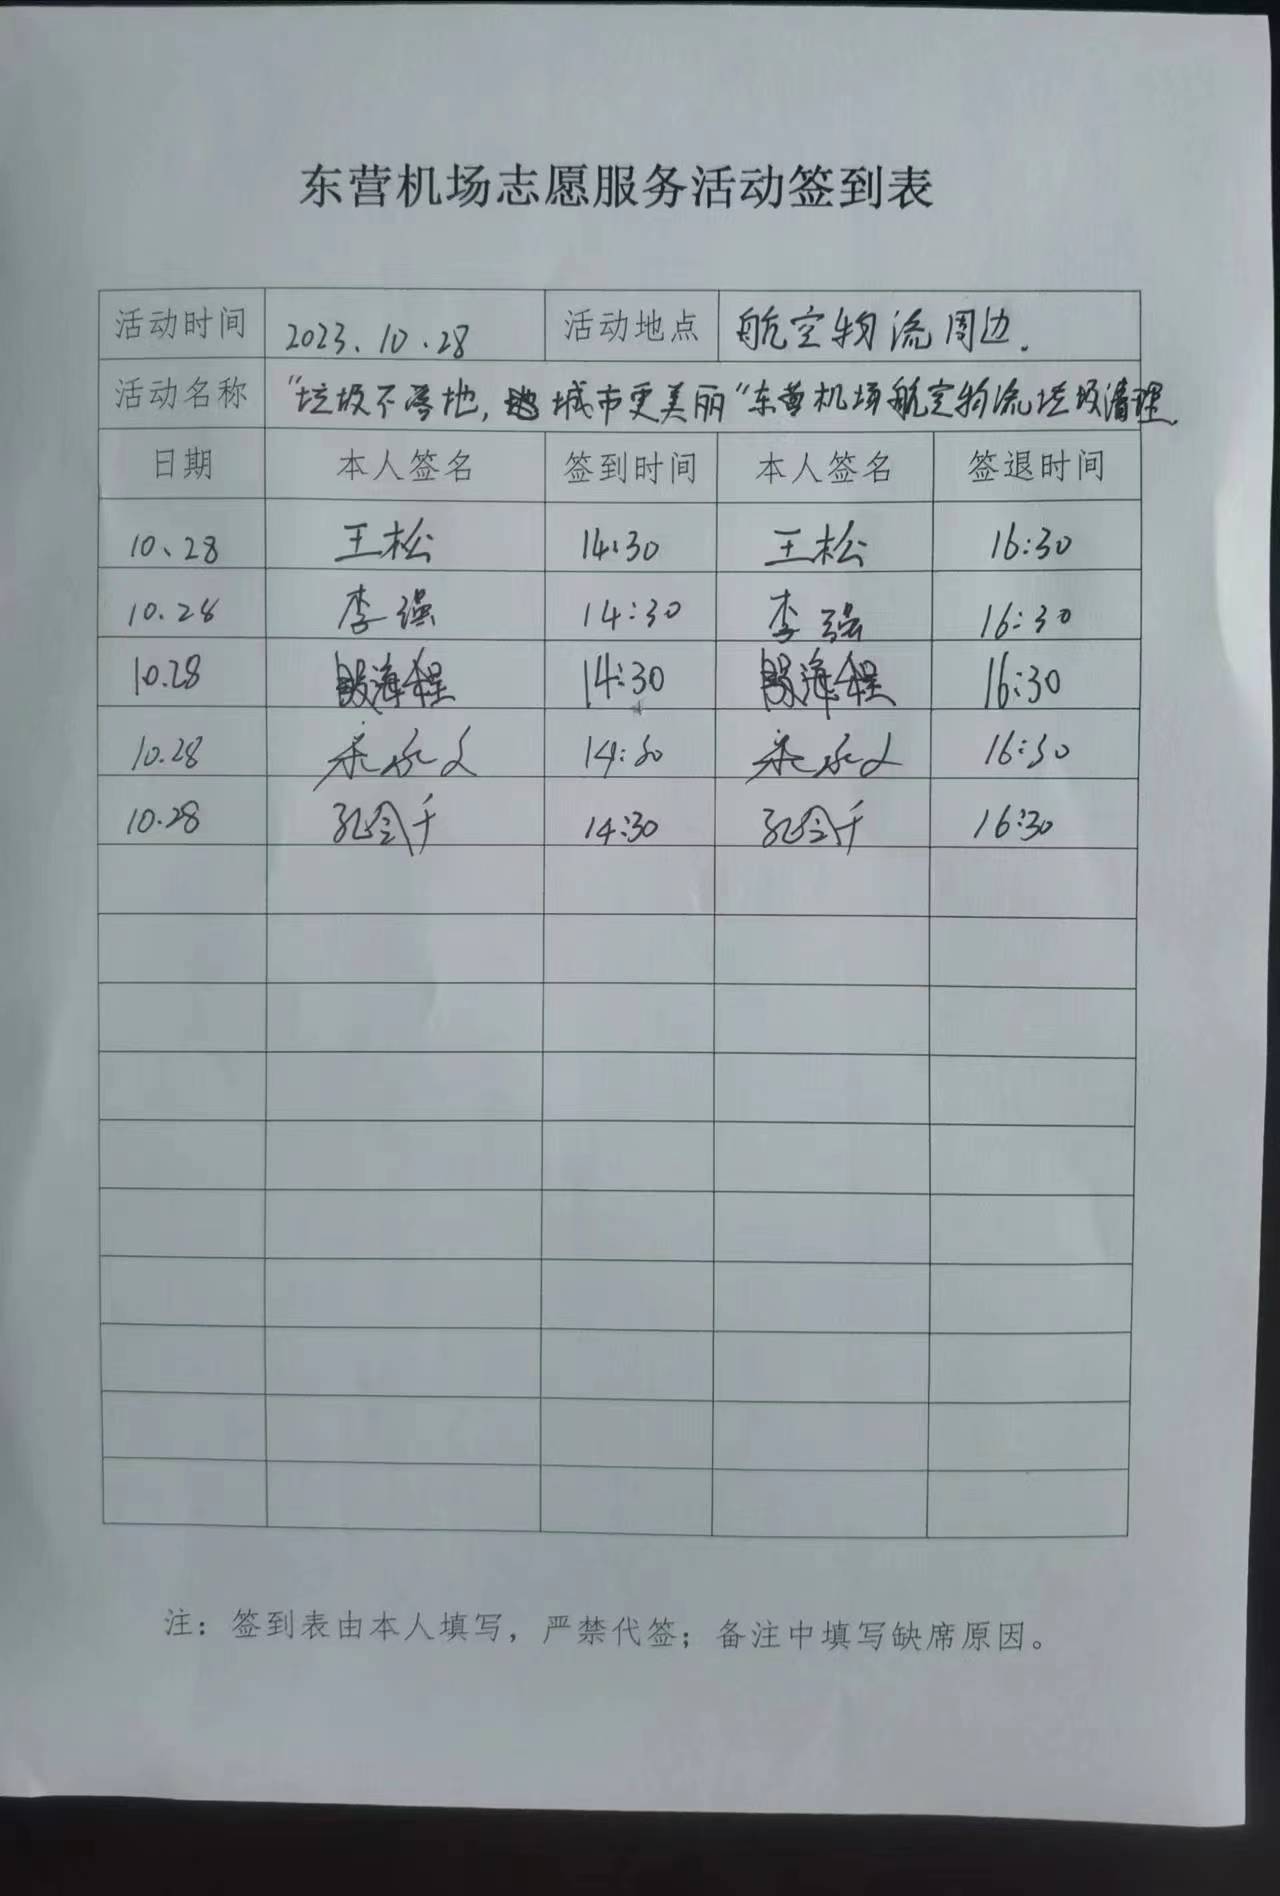 东营机场志愿服务活动签到表
活动时间 2023.10.28 活动地点 航空物流周边.
活动名称 "垃圾不落地, 城市更美丽"东营机场航空物流垃圾清理
日期 本人签名 签到时间 本人签名 签退时间
10、28 王松 14:30 王松 16:30
10.28 李强 14:30 李强 16:30
10.28 殷海程 14:30 殷海程 16:30
10.28 14:30 16:30
10.28 孔令千 14:30 孔令千 16:30
注：签到表由本人填写，严禁代签；备注中填写缺席原因。